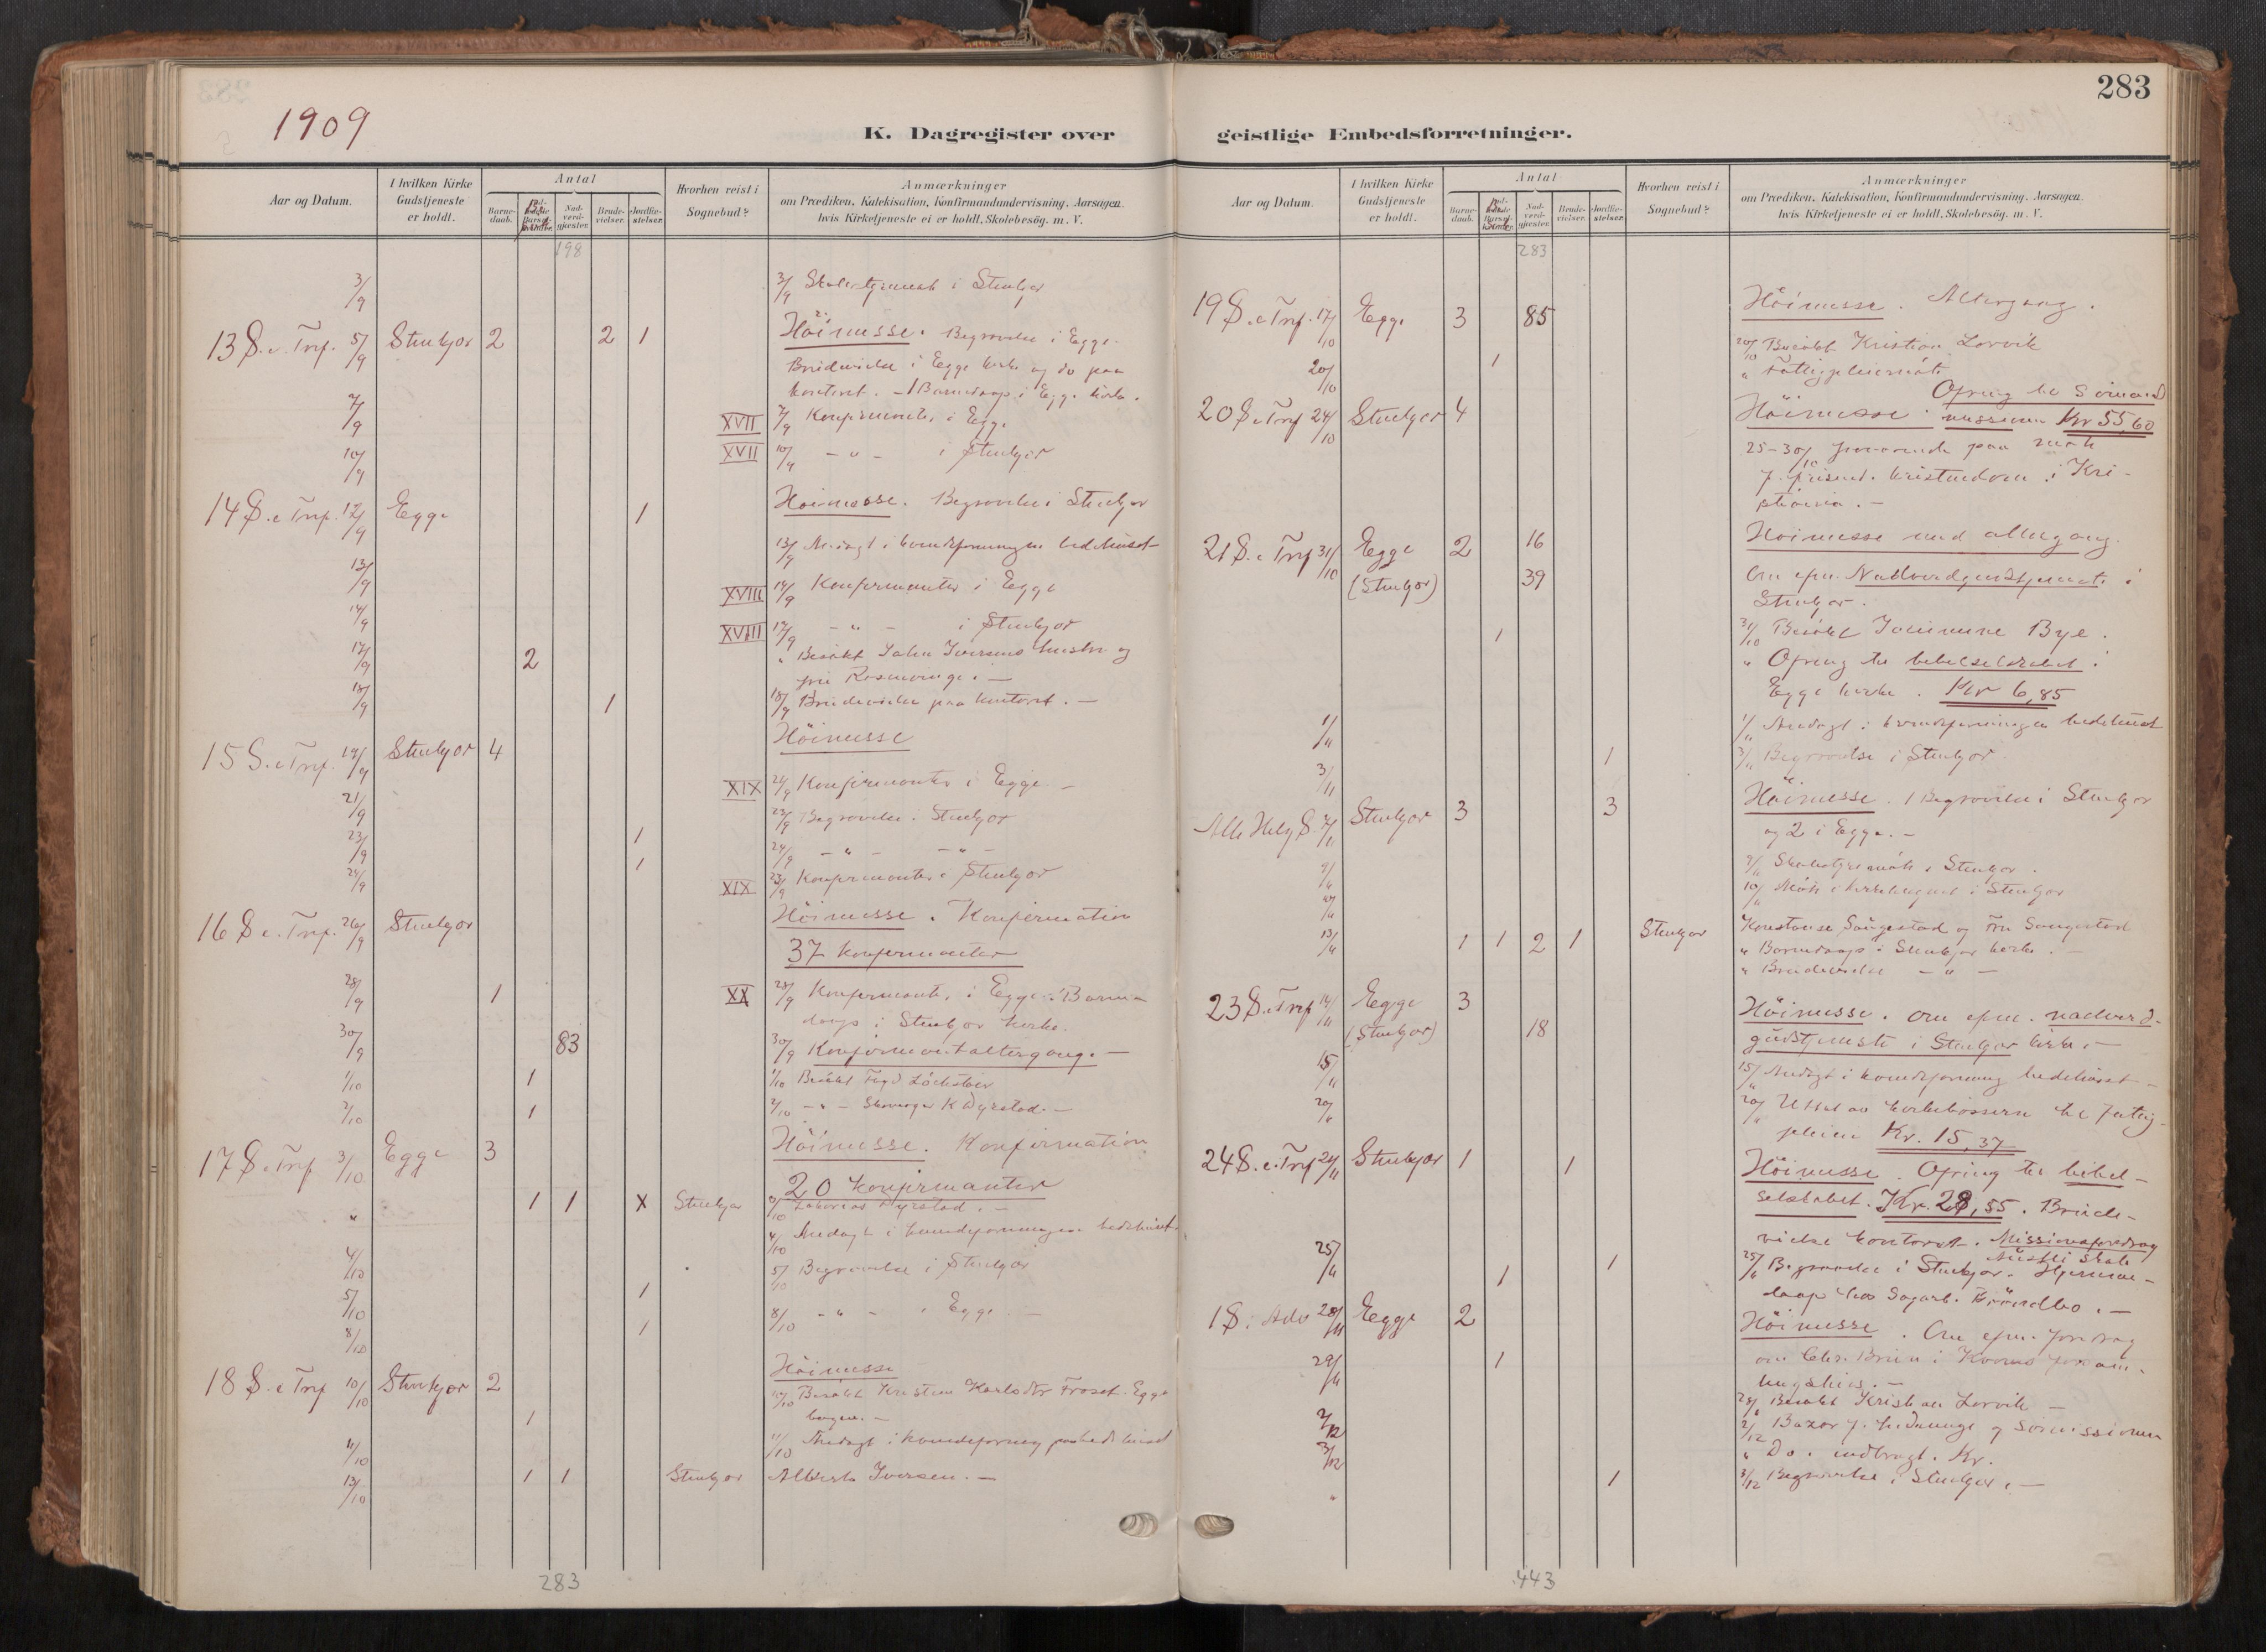 1909
K. Dagregister over
Aar og Datum.
I hvilken Kirke Gudstjeneste er holdt.
Antal
Barnedaab.
Nadverdgjæster.
Brudevielser.
Jordfæstelser.
Hvorhen reist i Sognebud?
Anmærkninger
om Prædiken, Katekisation, Konfirmandundervisning, Aarsagen,
hvis Kirketjeneste ei er holdt, Skolebesøg. m. V.
198
3/9 3/9 i Stenkjær
13 S. e. Tref. 5/9 Stenkjær 2 2 1 Höimesse. Begravelse i Egge.
Brudevielse i Egge kirke og do paa
kontoret. – 1 Barnedaap i Egge kirke.
7/9 XVII 7/9 Konfirmanter i Egge
10/9 XVII 10/9 – " – i Stenkjær
14 S. e. Tref. 12/9 Egge 1 Höimesse. Begravelse i Stenkjær
13/9 13/9 Andagt i kvindeforeningen bedehuset
14/9 XVIII 14/9 Konfirmanter i Egge
17/9 2 XVIII 17/9 – " – i Stenkjær
" Besökt John Iversens hustru og
fru
18/9 1 18/9 Brudevielse paa kontoret. –
15 S. e. Tref. 19/9 Stenkjær 4 Höimesse
21/9 XIX 21/9 Konfirmanter i Egge –
23/9 1 23/9 Begravelse i Stenkjær
24/9 1 24/9 – " – – " –
XIX Konfirmanter i Stenkjær
16 S. e. Tref. 26/9 Stenkjær Höimesse. Konfirmation
37 konfirmanter
28/9 1 XX 28/9 Konfirmanter i Egge. Barne-
daap i Stenkjær kirke.
30/9 83 30/9 Konfirmantaltergang. –
1/10 1 1/10 Besökt
2/10 1 2/10 – " – K Dyrstad. –
17 S. e. Tref. 3/10 Egge 3 Höimesse. Konfirmation
20 konfirmanter
" 1 1 X Stenkjær Dyrstad. –
4/10 4/10 Andagt i kvindeforeningen bedehuset
5/10 1 5/10 Begravelse i Stenkjær
8/10 1 8/10 – " – i Egge. –
18 S. e. Tref. 10/10 Stenkjær 2 Höimesse
1 10/10 Besökt Egge
11/10 11/10 Andagt i kvindeforening paa bedehuset
13/10 1 1 Stenkjær Alberte Iversen. –
283
283
geistlige Embedsforretninger.
Aar og Datum.
I hvilken Kirke Gudstjeneste er holdt.
Antal
Barnedaab.
Nadverdgjæster.
Brudevielser.
Jordfæstelser.
Hvorhen reist i Sognebud?
Anmærkninger
om Prædiken, Katekisation, Konfirmandundervisning, Aarsagen,
hvis Kirketjeneste ei er holdt, Skolebesøg. m. V.
283
19 S. e. Tref. 17/10 Egge 3 85 Höimesse. Altergang.
20/10 1 20/10 Besökt Kristian Lorvik
" Fattigpleiemöte
Ofring til Sömands-
20 S. e. Tref. 24/10 Stenkjær 4 Höimesse. missionen Kr 55,60
25-30/10 fraværende paa möte
f. frisind. kristendom i Kri-
stiania. –
21 S. e. Tref. 31/10 Egge 2 16 Höimesse med altergang.
(Stenkjær) 39 Om efm. Nadverdgudstjeneste i
Stenkjær.
1 31/10 Besökt Bye.
" Ofring til bibelselskabet i
Egge kirke. Kr 6,85
1/11 1/11 Andagt i kvindeforeningen bedehuset
3/11 1 3/11 Begravelse i Stenkjær.
Alle Helg S. 7/11 Stenkjær 3 3 Höimesse. 1 Begravelse i Stenkjær
og 2 i Egge. –
9/11 9/11 i Stenkjær.
10/11 10/11 Möte i i Stenkjær
13/11 1 1 2 1 Stenkjær Konstanse Saugestad og Fru Saugestad
" Barnedaap i Stenkjær kirke. –
" Brudevielse – " –
23 S. e. Tref. 14/11 Egge 3 Höimesse. Om efm. nadverd-
(Stenkjær) 18 gudstjeneste i Stenkjær kirke. –
15/11 15/11 Andagt i kvindeforening bedehuset –
20/11 20/11 Uttat av kirkebössern til fattig-
pleien Kr. 15,37
24 S. e. Tref. 21/11 Stenkjær 1 1 Höimesse. Ofring til bibel-
selskabet. Kr. 28,55. Brude-
vielse kontoret. Missionsforedrag
skole
25/11 1 1 25/11 Begravelse i Stenkjær. Hjemme-
daap hos
1 S. i Adv 28/11 Egge 2 Höimesse. Om efm. foredrag
om Chr. Bruun i Kvams forsam-
lingshus. –
29/11 1 29/11 Besökt Kristian Lorvik –
2/12 2/12 Bazar f. og Sömissionen
3/12 " Do. indbragt. Kr.
" 1 3/12 Begravelse i Stenkjær. –
443